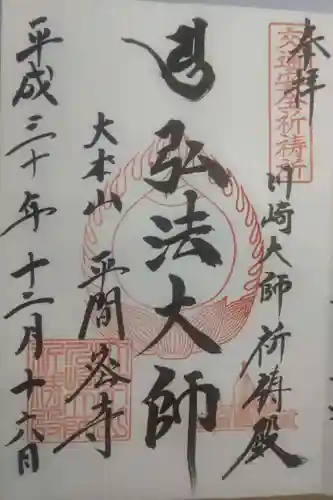 奉拝
交通安全祈祷所
川崎大師祈祷殿
弘法大師
大本山平間寺
平成三十年十二月十六日